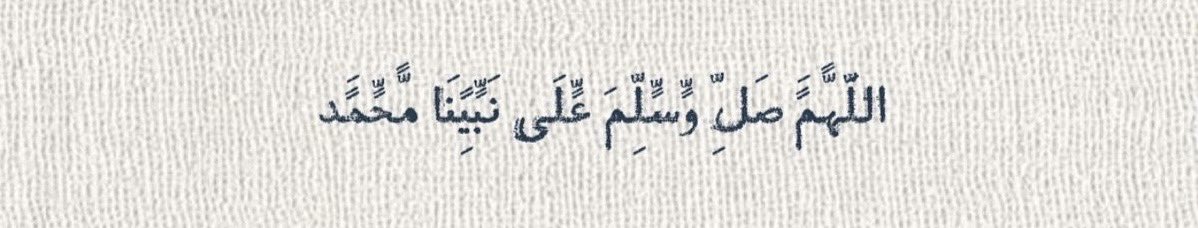 اللَّهُمَّ صَلِّ وَسَلِّمَ عَلَى نَبِيِّنَا مُحَمَّد